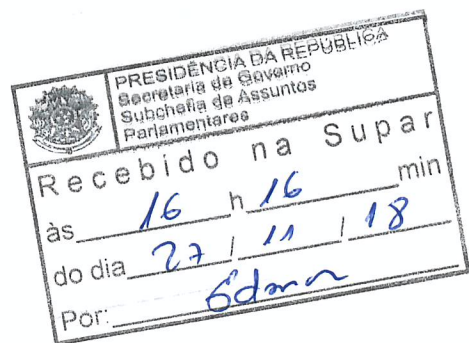 PRESIDÊNCIA DA REPÚBLICA
Secretaria de Governo
Subchefia de Assuntos
Parlamentares
Recebido na Supar
às 16 h 16 min
do dia 27 / 11 / 18
Por: